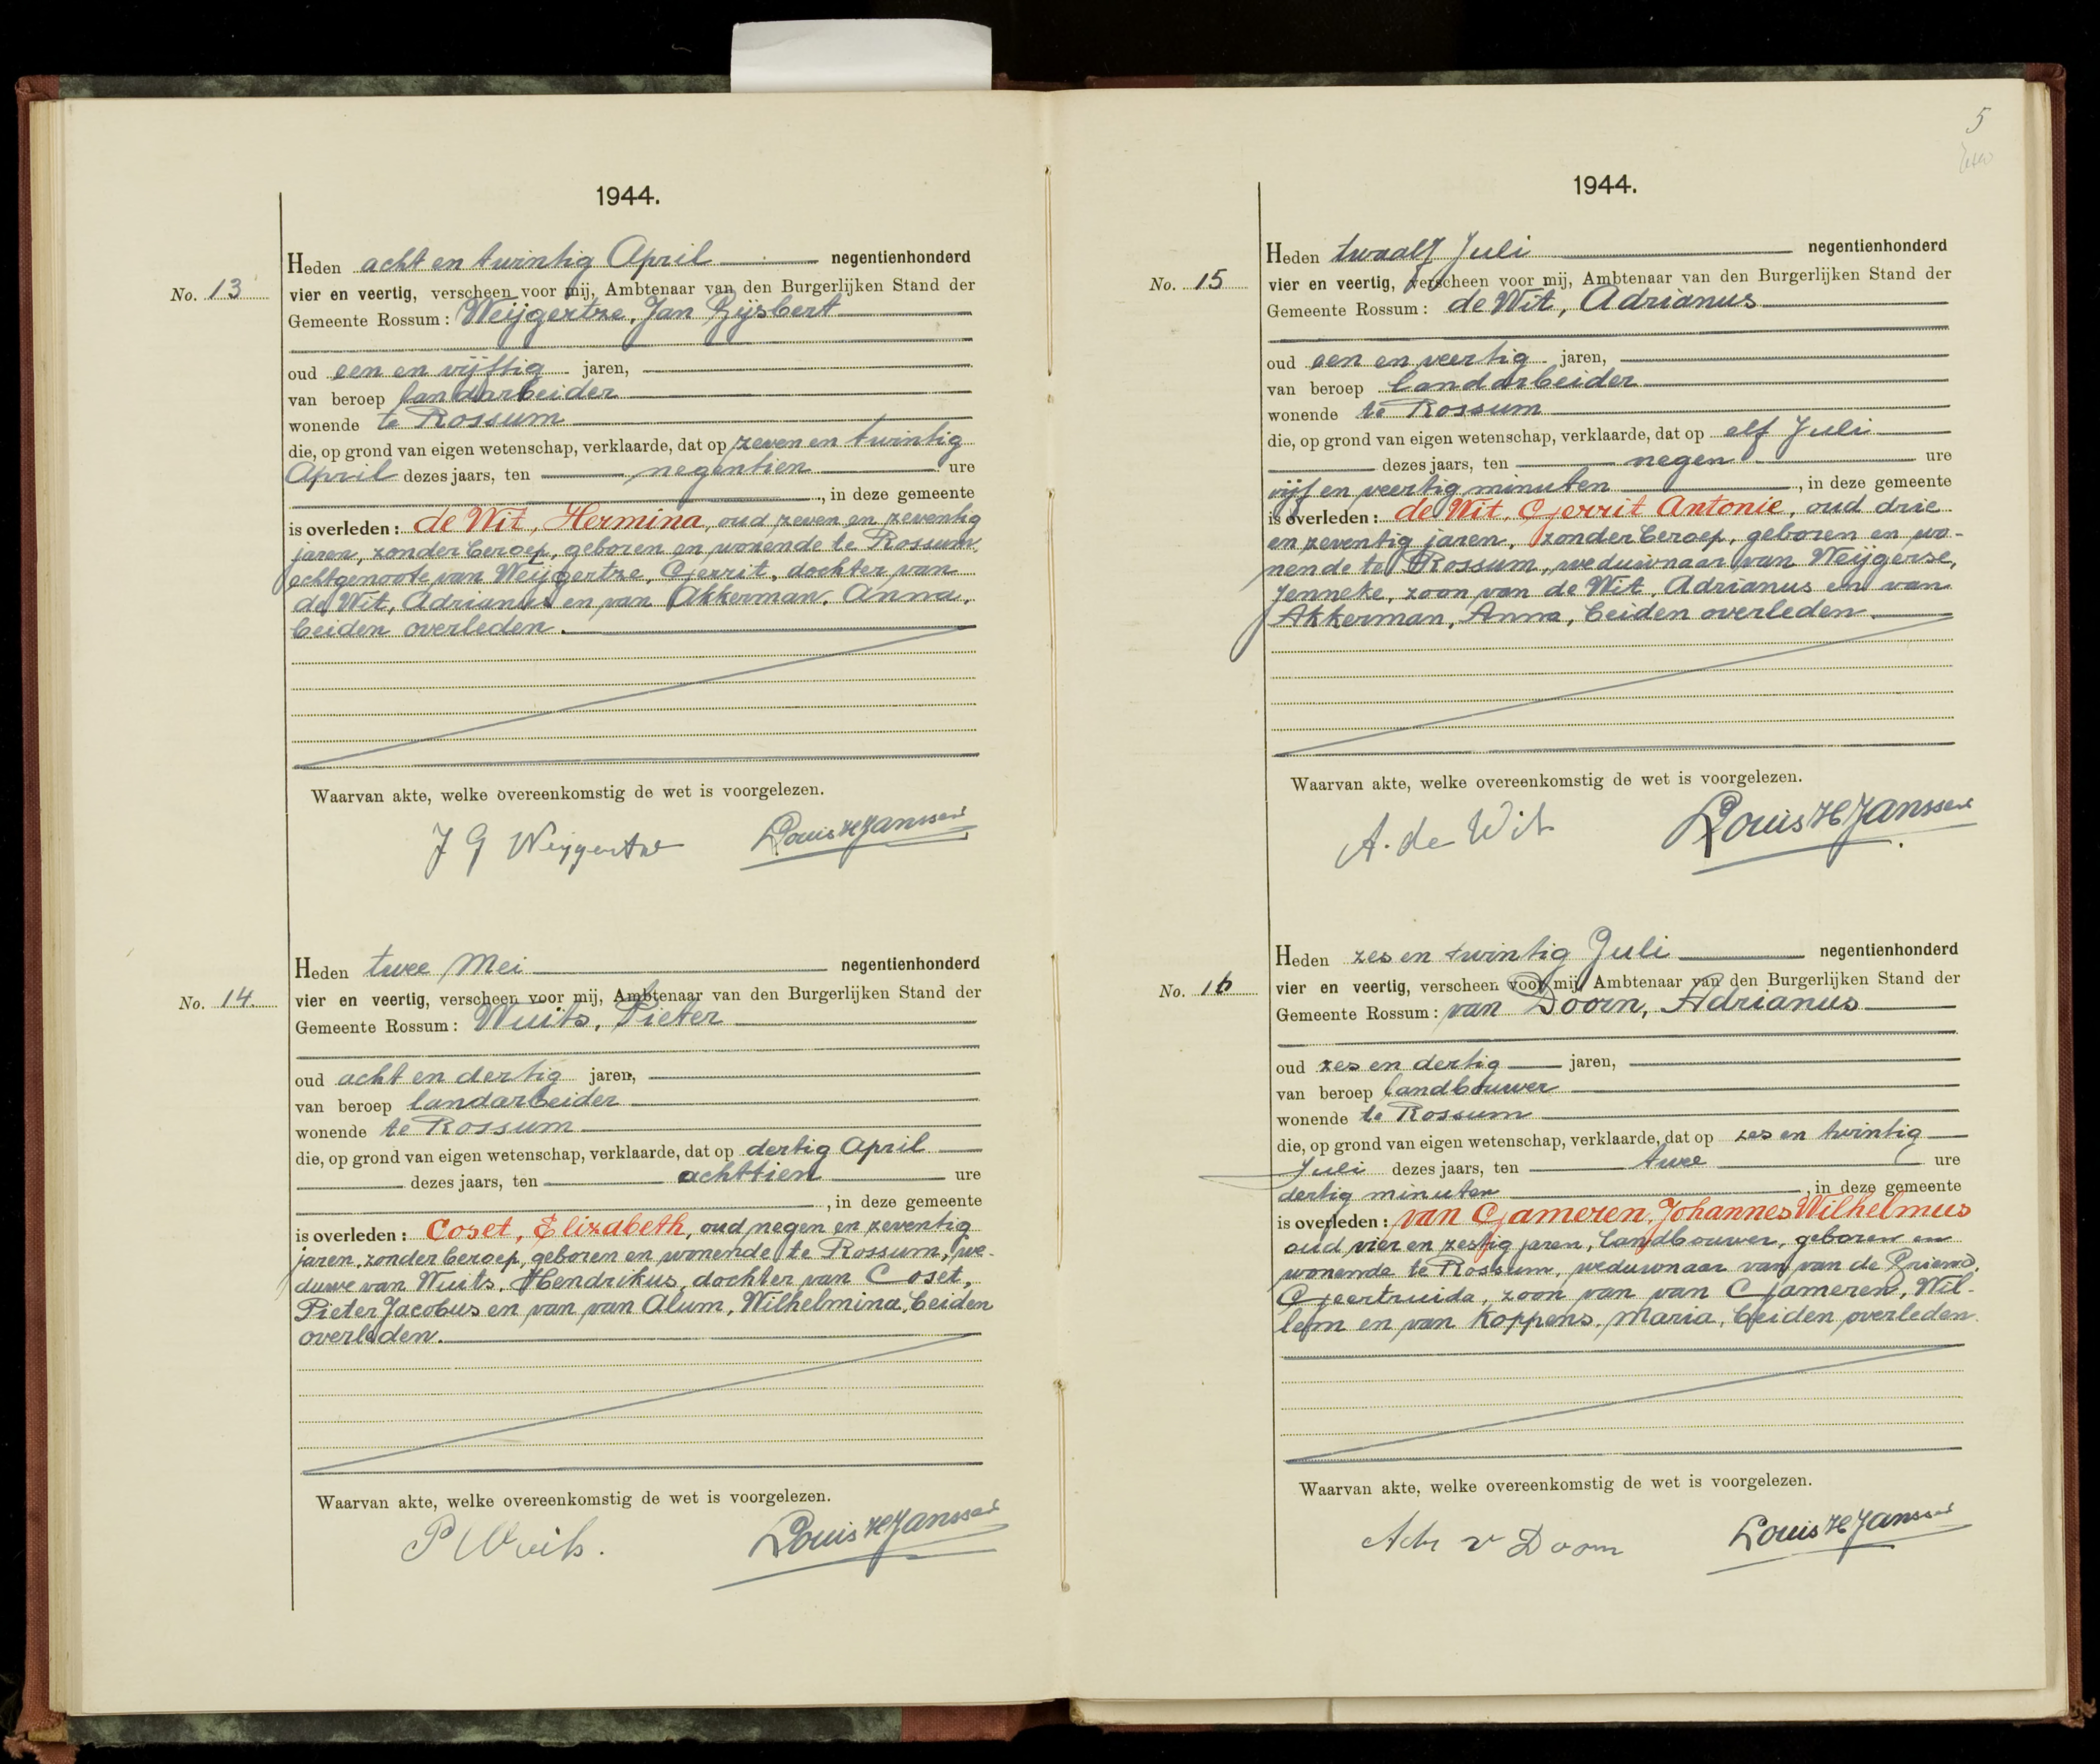 1944.
No. 13
Heden acht en twintig April negentienhonderd
vier en veertig, verscheen voor mij, Ambtenaar van den Burgerlijken Stand der
Gemeente Rossum: Weijgertze, Jan Gijsbert
oud een en vijftig jaren,
van beroep landarbeider
wonende te Rossum
die, op grond van eigen wetenschap, verklaarde, dat op zeven en twintig
April dezes jaars, ten negentien ure
, in deze gemeente
is overleden: de Wit, Hermina, oud zeven en zeventig
jaren, zonder beroep, geboren en wonende te Rossum,
echtgenoote van Weijgertze, Gerrit, dochter van
de Wit, Adrianus en van Akkerman, Anna,
beiden overleden.
Waarvan akte, welke overeenkomstig de wet is voorgelezen.
J G Weijgertze Louis H Janssen
No. 14
Heden twee Mei negentienhonderd
vier en veertig, verscheen voor mij, Ambtenaar van den Burgerlijken Stand der
Gemeente Rossum: Wuits, Pieter
oud acht en dertig jaren,
van beroep landarbeider
wonende te Rossum
die, op grond van eigen wetenschap, verklaarde, dat op dertig April
dezes jaars, ten achttien ure
, in deze gemeente
is overleden: Coset, Elizabeth, oud negen en zeventig
jaren, zonder beroep, geboren en wonende te Rossum, we-
duwe van Wuits, Hendrikus, dochter van Coset,
Pieter Jacobus en van van Alum, Wilhelmina, beiden
overleden.
Waarvan akte, welke overeenkomstig de wet is voorgelezen.
P Wuits. Louis H Janssen
5
1944.
No. 15
Heden twaalf Juli negentienhonderd
vier en veertig, verscheen voor mij, Ambtenaar van den Burgerlijken Stand der
Gemeente Rossum: de Wit, Adrianus
oud een en veertig jaren,
van beroep landarbeider
wonende te Rossum
die, op grond van eigen wetenschap, verklaarde, dat op elf Juli
dezes jaars, ten negen ure
vijf en veertig minuten, in deze gemeente
is overleden: de Wit, Gerrit Antonie, oud drie
en zeventig jaren, zonder beroep, geboren en wo-
nende te Rossum, weduwnaar van Weijgerse,
Jenneke, zoon van de Wit, Adrianus en van
Akkerman, Anna, beiden overleden.
Waarvan akte, welke overeenkomstig de wet is voorgelezen.
A. de Wit Louis H Janssen
No. 16
Heden zes en twintig Juli negentienhonderd
vier en veertig, verscheen voor mij, Ambtenaar van den Burgerlijken Stand der
Gemeente Rossum: van Doorn, Adrianus
oud zes en dertig jaren,
van beroep landbouwer
wonende te Rossum
die, op grond van eigen wetenschap, verklaarde, dat op zes en twintig
Juli dezes jaars, ten twee ure
dertig minuten, in deze gemeente
is overleden: van Gameren, Johannes Wilhelmus
oud vier en zestig jaren, landbouwer, geboren en
wonende te Rossum, weduwnaar van van de
Geertruida, zoon van van Gameren, Wil-
lem en van Koppens, Maria, beiden overleden.
Waarvan akte, welke overeenkomstig de wet is voorgelezen.
Adr v Doorn Louis H Janssen